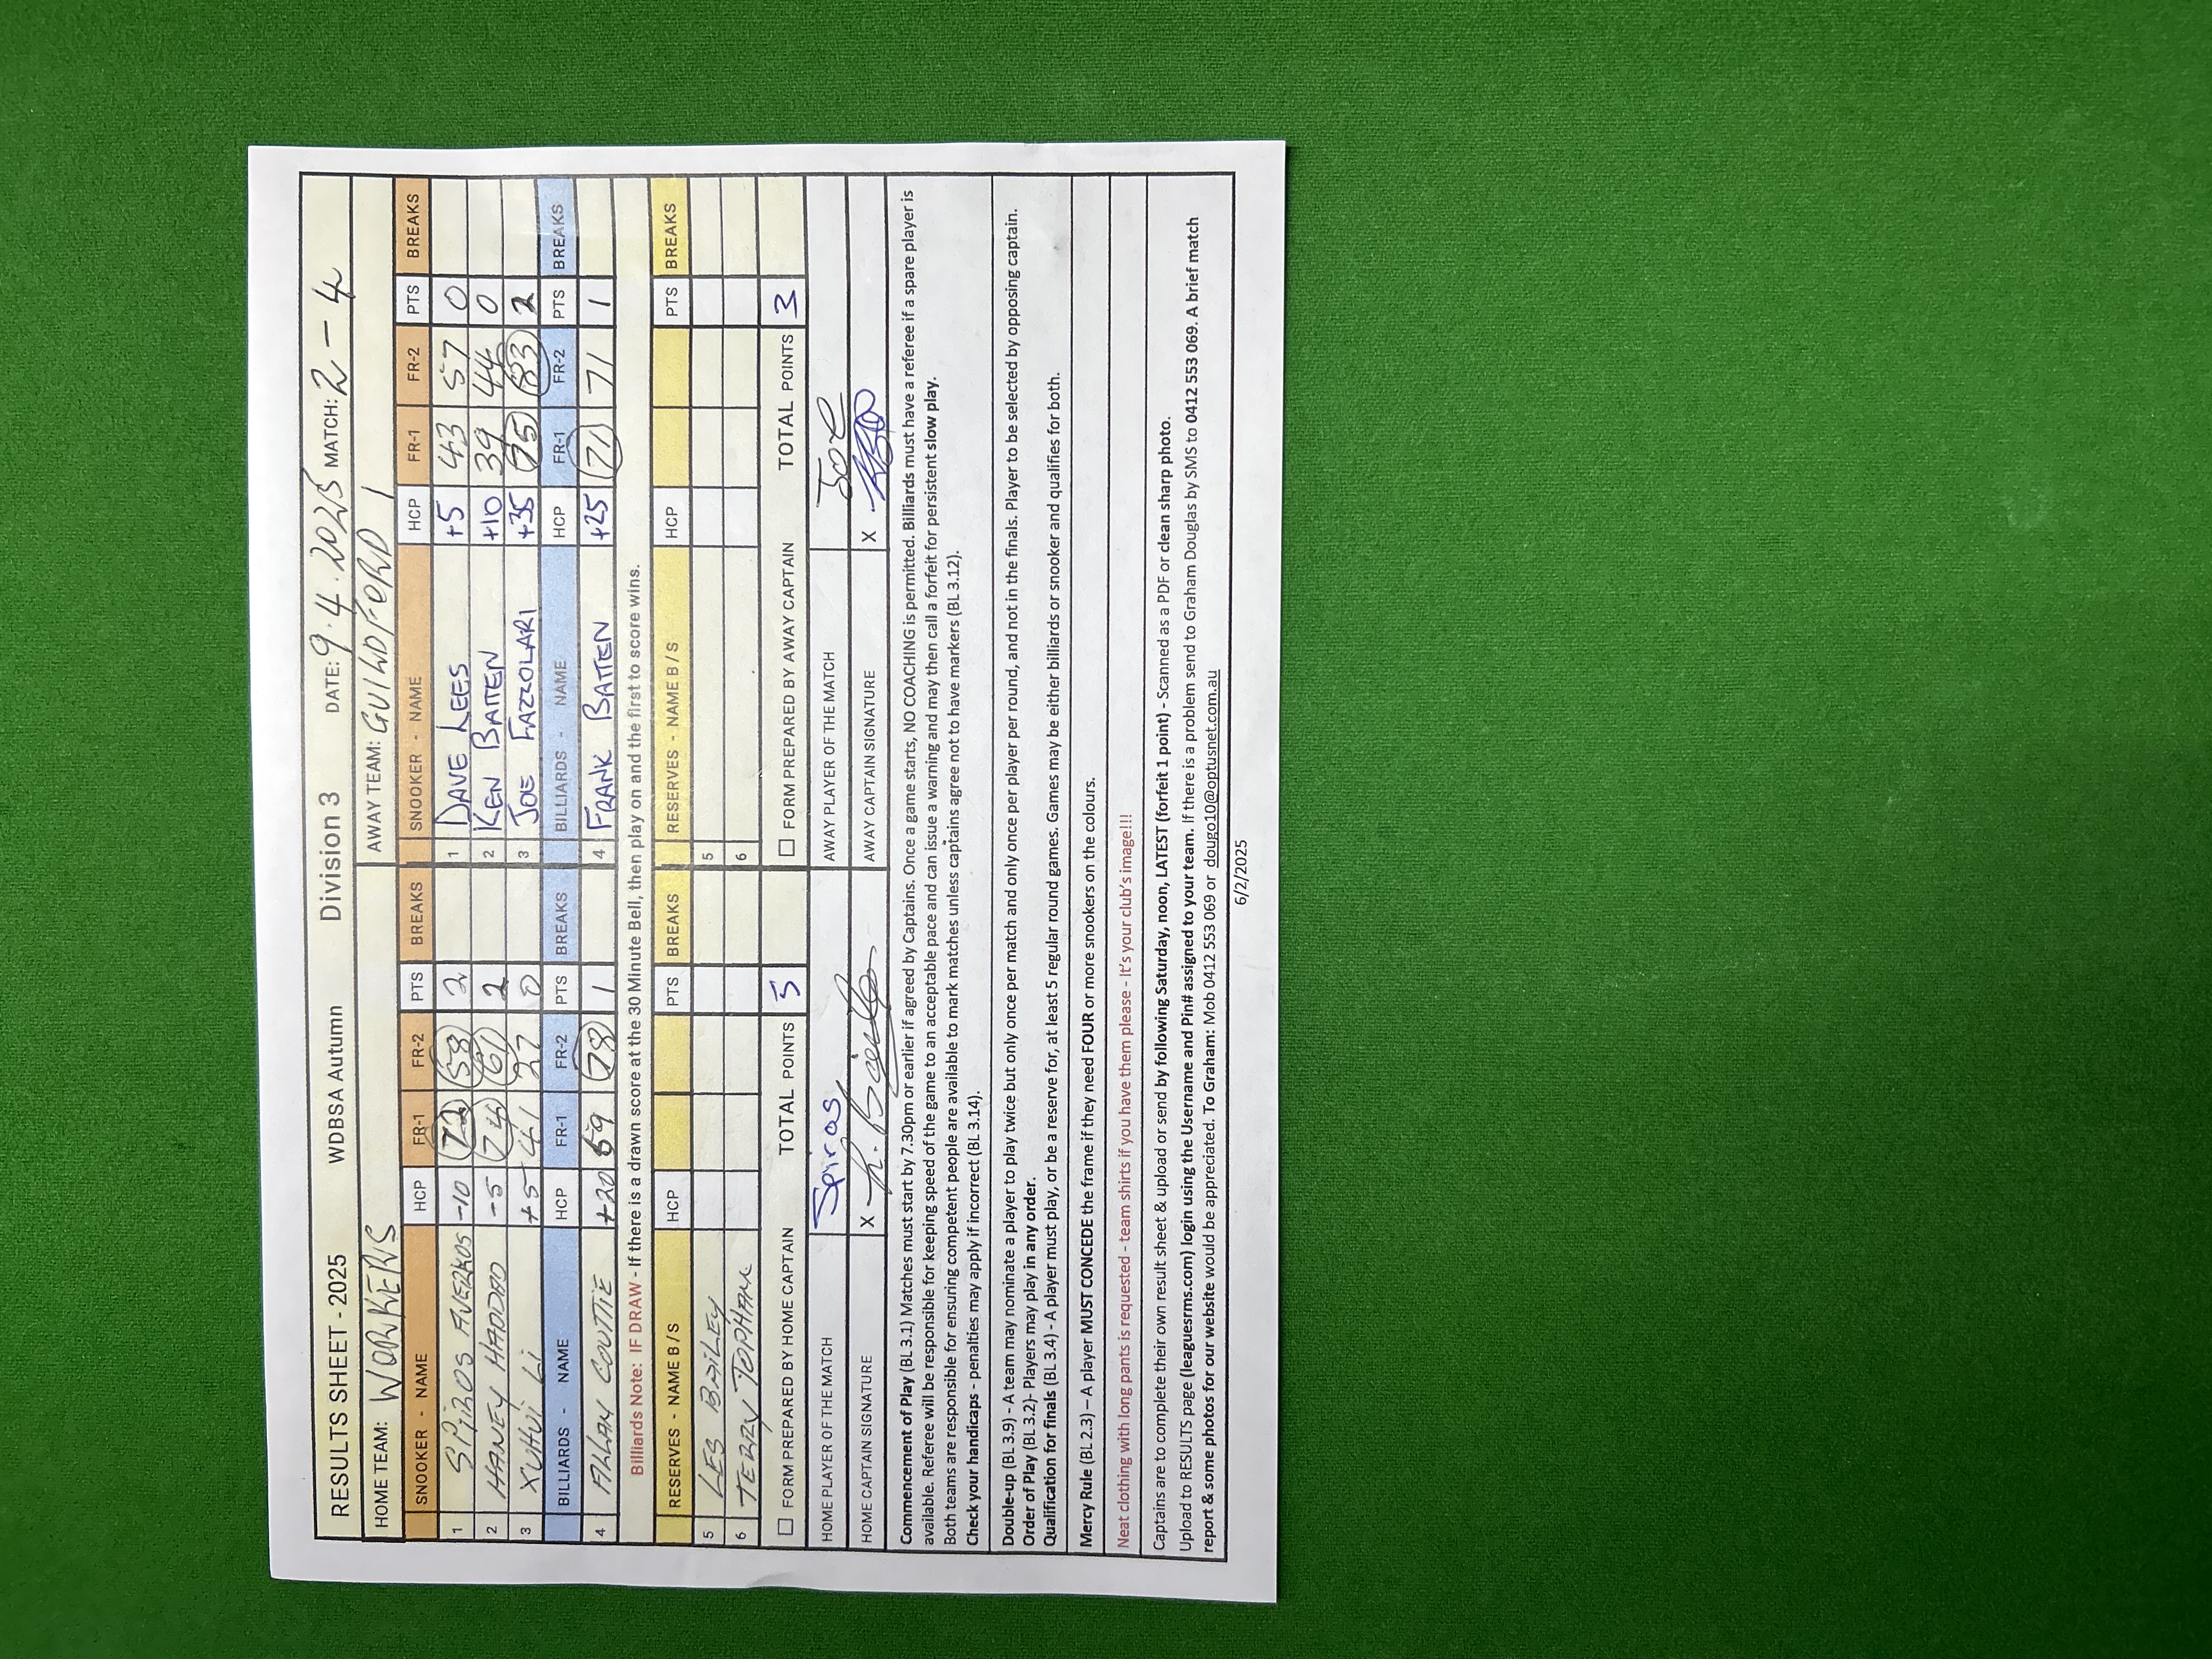 RESULTS SHEET - 2025 WDBSA Autumn Division 3 DATE: 9.4.2025 MATCH: 2-4
HOME TEAM: WORKERS AWAY TEAM: GUILDFORD 1
SNOOKER - NAME HCP FR-1 FR-2 PTS BREAKS SNOOKER - NAME HCP FR-1 FR-2 PTS BREAKS
1 SPIROS AVERKOS -10 72 58 2 1 DAVE LEES +5 43 57 0
2 HANEY HADDAD -5 74 61 2 2 KEN BATTEN +10 39 44 0
3 XUHUI Li +5 41 27 0 3 JOE FAZZOLARI +35 75 83 2
BILLIARDS NAME HCP FR-1 FR-2 PTS BREAKS BILLIARDS - NAME HCP FR-1 FR-2 PTS BREAKS
4 ALLAN COUTTIE +20 69 78 1 4 FRANK BATTEN +25 71 71 1
Billiards Note: IF DRAW - If there is a drawn score at the 30 Minute Bell, then play on and the first to score wins.
RESERVES - NAME B / S HCP PTS BREAKS RESERVES - NAME B / S HCP PTS BREAKS
5 LES BAiLEY 5
6 TERRY TOPHAM 6
FORM PREPARED BY HOME CAPTAIN TOTAL POINTS 5 FORM PREPARED BY AWAY CAPTAIN TOTAL POINTS 3
HOME PLAYER OF THE MATCH Spiros AWAY PLAYER OF THE MATCH Joe
HOME CAPTAIN SIGNATURE X AWAY CAPTAIN SIGNATURE X
Commencement of Play (BL 3.1) Matches must start by 7.30pm or earlier if agreed by Captains. Once a game starts, NO COACHING is permitted. Billiards must have a referee if a spare player is
available. Referee will be responsible for keeping speed of the game to an acceptable pace and can issue a warning and may then call a forfeit for persistent slow play.
Both teams are responsible for ensuring competent people are available to mark matches unless captains agree not to have markers (BL 3.12).
Check your handicaps - penalties may apply if incorrect (BL 3.14).
Double-up (BL 3.9) – A team may nominate a player to play twice but only once per match and only once per player per round, and not in the finals. Player to be selected by opposing captain.
Order of Play (BL 3.2)- Players may play in any order.
Qualification for finals (BL 3.4) - A player must play, or be a reserve for, at least 5 regular round games. Games may be either billiards or snooker and qualifies for both.
Mercy Rule (BL 2.3) – A player MUST CONCEDE the frame if they need FOUR or more snookers on the colours.
Neat clothing with long pants is requested - team shirts if you have them please - It's your club's image!!!
Captains are to complete their own result sheet & upload or send by following Saturday, noon, LATEST (forfeit 1 point) - Scanned as a PDF or clean sharp photo.
Upload to RESULTS page (leaguesrms.com) login using the Username and Pin# assigned to your team. If there is a problem send to Graham Douglas by SMS to 0412 553 069. A brief match
report & some photos for our website would be appreciated. To Graham: Mob 0412 553 069 or dougo10@optusnet.com.au
6/2/2025